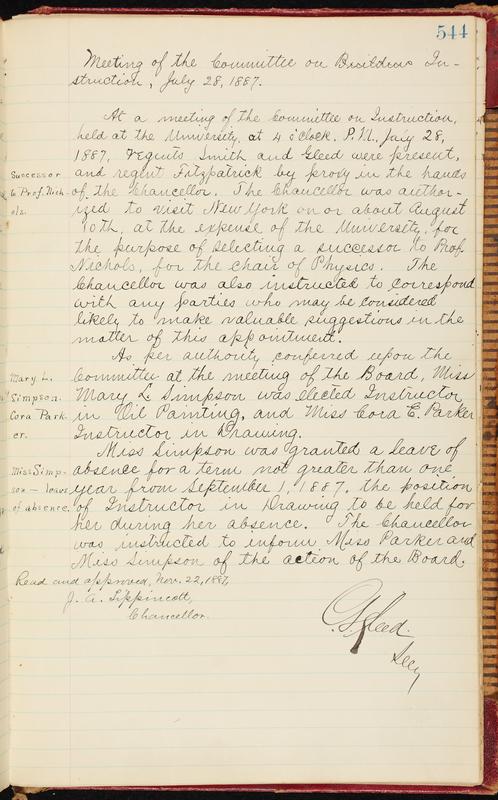 544
Meeting of the Committee on Buildins In-
struction, July 28, 1887.
At a meeting of the Committee on Instruction,
held at the University, at 4 o'clock. P.M., July 28,
1887, Regents Smith and Gleed were present,
Successor
to Prof. Nich-
ols.
and regent Fitzpatrick by proxy in the hands
of the Chancellor. The Chancellor was author-
ized to visit New York on or about August
10th, at the expense of the University, for
the purpose of selecting a successor to Prof.
Nichols, for the chair of Physics. The
Chancellor was also instructed to correspond
with any parties who may be considered
likely to make valuable suggestions in the
matter of this appointment.
As per authority conferred upon the
Mary L.
Simpson.
Cora Park
er.
Committee at the meeting of the Board, Miss
Mary L. Simpson was elected Instructor
in Oil Painting, and Miss Cora E. Parker
Instructor in Drawing.
Miss Simpson was granted a leave of
Miss Simp-
son — leave
of absence.
absence for a term not greater than one
year from September 1, 1887, the position
of Instructor in Drawing to be held for
her during her absence. The Chancellor
was instructed to inform Miss Parker and
Miss Simpson of the action of the Board.
Read and approved, Nov. 22, 1887,
J. A. Lippincott,
Chancellor.
C.S. Gleed.
Secy